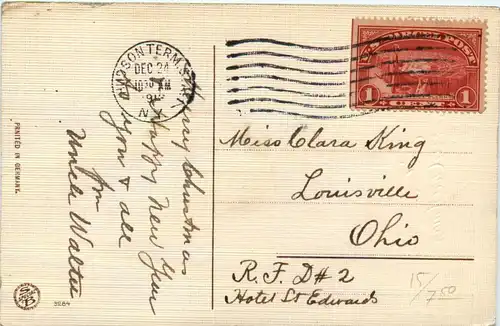 HUDSON TERM. STA.
DEC 24
10 30 AM
N.Y.
U.S. PARCEL POST
1 CENT 1
Merry Christmas
& Happy New Year
to you & all
from
Uncle Walter
Miss Clara King
Louisville
Ohio
R. F. D # 2
Hotel St Edwards
15/7.50
PRINTED IN GERMANY.
3284